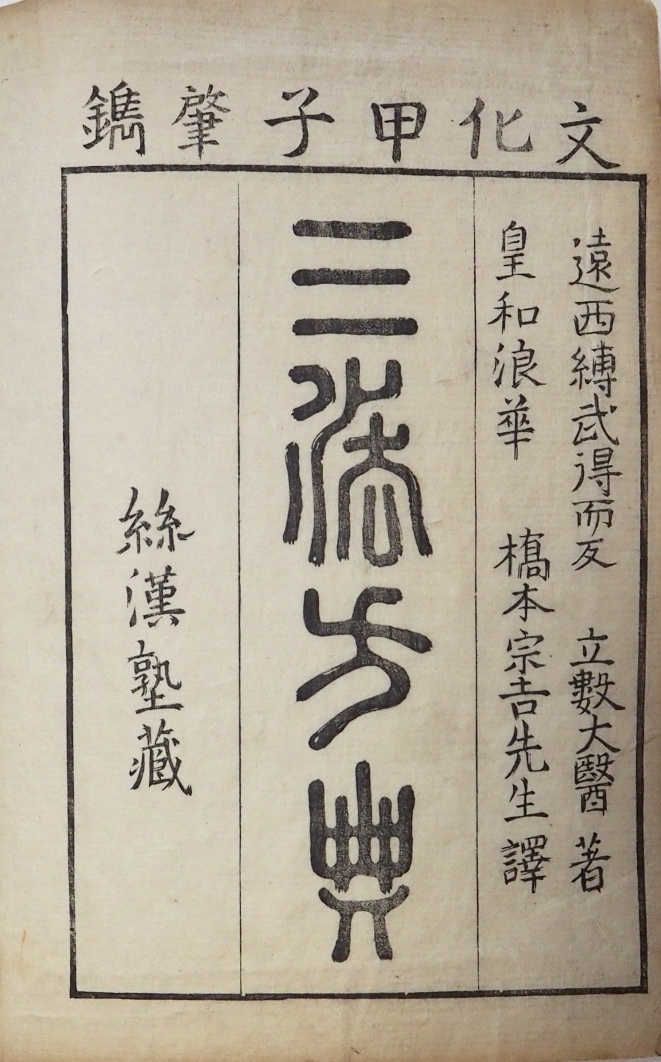 文化甲子肇鐫
遠西縛武得而叐 立數大醫著
皇和浪華 橋本宗吉先生譯
三法方典
絲漢塾藏